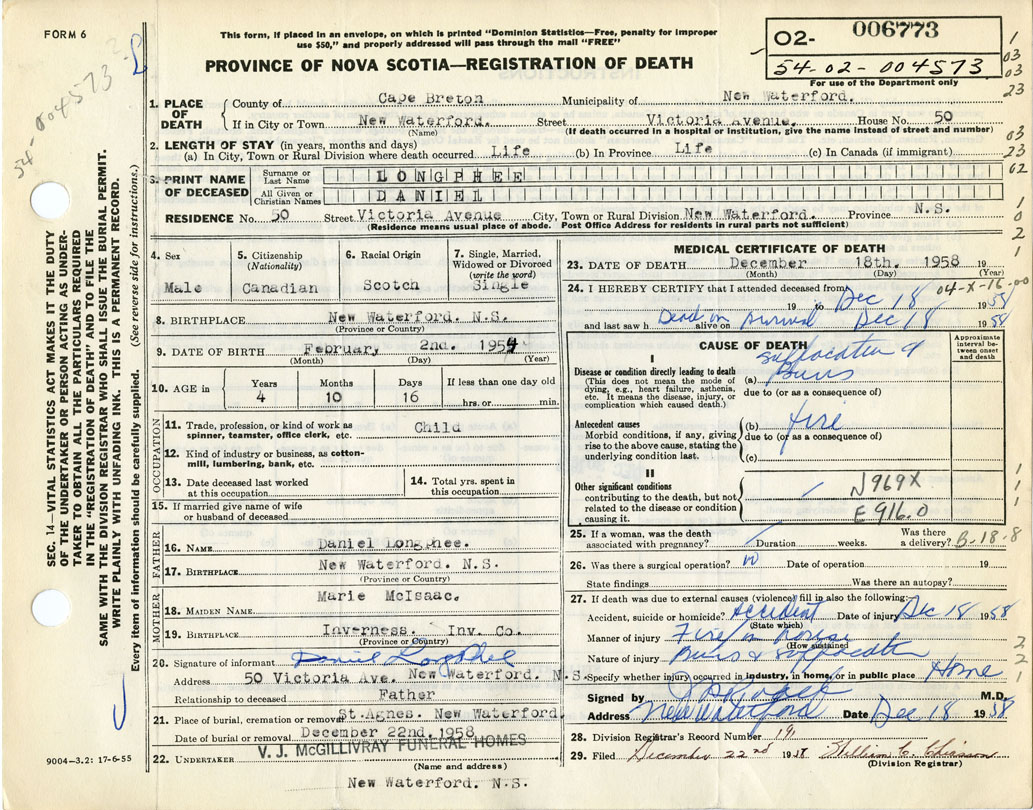 FORM 6
This form, if placed in an envelope, on which is printed "Dominion Statistics—Free, penalty for improper
use $50," and properly addressed will pass through the mail "FREE"
PROVINCE OF NOVA SCOTIA—REGISTRATION OF DEATH
02- 006773
54-02-004573
For use of the Department only
54-004573
1. PLACE OF DEATH { County of Cape Breton Municipality of New Waterford.
If in City or Town New Waterford. Street Victoria Avenue. House No. 50
(Name) (If death occurred in a hospital or institution, give the name instead of street and number)
2. LENGTH OF STAY (in years, months and days)
(a) In City, Town or Rural Division where death occurred Life (b) In Province Life (c) In Canada (if immigrant)
3. PRINT NAME OF DECEASED
Surname or Last Name LONGPHEE
All Given or Christian Names DANIEL
RESIDENCE No. 50 Street Victoria Avenue City, Town or Rural Division New Waterford. Province N.S.
(Residence means usual place of abode. Post Office Address for residents in rural parts not sufficient)
4. Sex Male
5. Citizenship (Nationality) Canadian
6. Racial Origin Scotch
7. Single, Married, Widowed or Divorced (write the word) Single
8. BIRTHPLACE New Waterford. N.S.
(Province or Country)
9. DATE OF BIRTH February 2nd. 1954
(Month) (Day) (Year)
10. AGE in Years Months Days If less than one day old
4 10 16 hrs. or min.
OCCUPATION
11. Trade, profession, or kind of work as spinner, teamster, office clerk, etc. Child
12. Kind of industry or business, as cotton-mill, lumbering, bank, etc.
13. Date deceased last worked at this occupation
14. Total yrs. spent in this occupation
15. If married give name of wife or husband of deceased
FATHER
16. NAME Daniel Longphee.
17. BIRTHPLACE New Waterford. N.S.
(Province or Country)
MOTHER
18. MAIDEN NAME Marie McIsaac.
19. BIRTHPLACE Inverness. Inv. Co.
(Province or Country)
20. Signature of informant Daniel Longphee
Address 50 Victoria Ave. New Waterford. N.S.
Relationship to deceased Father
21. Place of burial, cremation or removal St. Agnes. New Waterford.
Date of burial or removal December 22nd. 1958
22. UNDERTAKER V. J. McGILLIVRAY FUNERAL HOMES
(Name and address)
New Waterford. N.S.
9004—3.2: 17-6-55
MEDICAL CERTIFICATE OF DEATH
23. DATE OF DEATH December 18th. 1958 19
(Month) (Day) (Year)
04-X-16-00
24. I HEREBY CERTIFY that I attended deceased from
19 to Dec 18 1958
and last saw h Dead on alive on Arrival Dec 18 1958
CAUSE OF DEATH
Approximate interval between onset and death
I
Disease or condition directly leading to death
(This does not mean the mode of dying, e.g., heart failure, asthenia, etc. It means the disease, injury, or complication which caused death.)
(a) Suffocation & Burns
due to (or as a consequence of)
Antecedent causes
Morbid conditions, if any, giving rise to the above cause, stating the underlying condition last.
(b) fire
due to (or as a consequence of)
(c)
II
Other significant conditions
contributing to the death, but not related to the disease or condition causing it.
N969X
E916.0
25. If a woman, was the death associated with pregnancy? Duration weeks. Was there a delivery? B-18-8
26. Was there a surgical operation? no Date of operation 19
State findings Was there an autopsy?
27. If death was due to external causes (violence) fill in also the following:
Accident, suicide or homicide? Accident Date of injury Dec 18 1958
(State which)
Manner of injury Fire in house
(How sustained
Nature of injury Burns & Suffocation
Specify whether injury occurred in industry, in home, or in public place Home
Signed by M.D.
Address New Waterford Date Dec 18 1958
28. Division Registrar's Record Number 191
29. Filed December 22nd 1958 William C. Chiasson
(Division Registrar)
SEC. 14—VITAL STATISTICS ACT MAKES IT THE DUTY
OF THE UNDERTAKER OR PERSON ACTING AS UNDER-
TAKER TO OBTAIN ALL THE PARTICULARS REQUIRED
IN THE "REGISTRATION OF DEATH" AND TO FILE THE
SAME WITH THE DIVISION REGISTRAR WHO SHALL ISSUE THE BURIAL PERMIT.
WRITE PLAINLY WITH UNFADING INK. THIS IS A PERMANENT RECORD.
Every item of information should be carefully supplied. (See reverse side for instructions.)
1
03
03
23
03
23
62
1
0
2
1
1
1
1
2
2
1